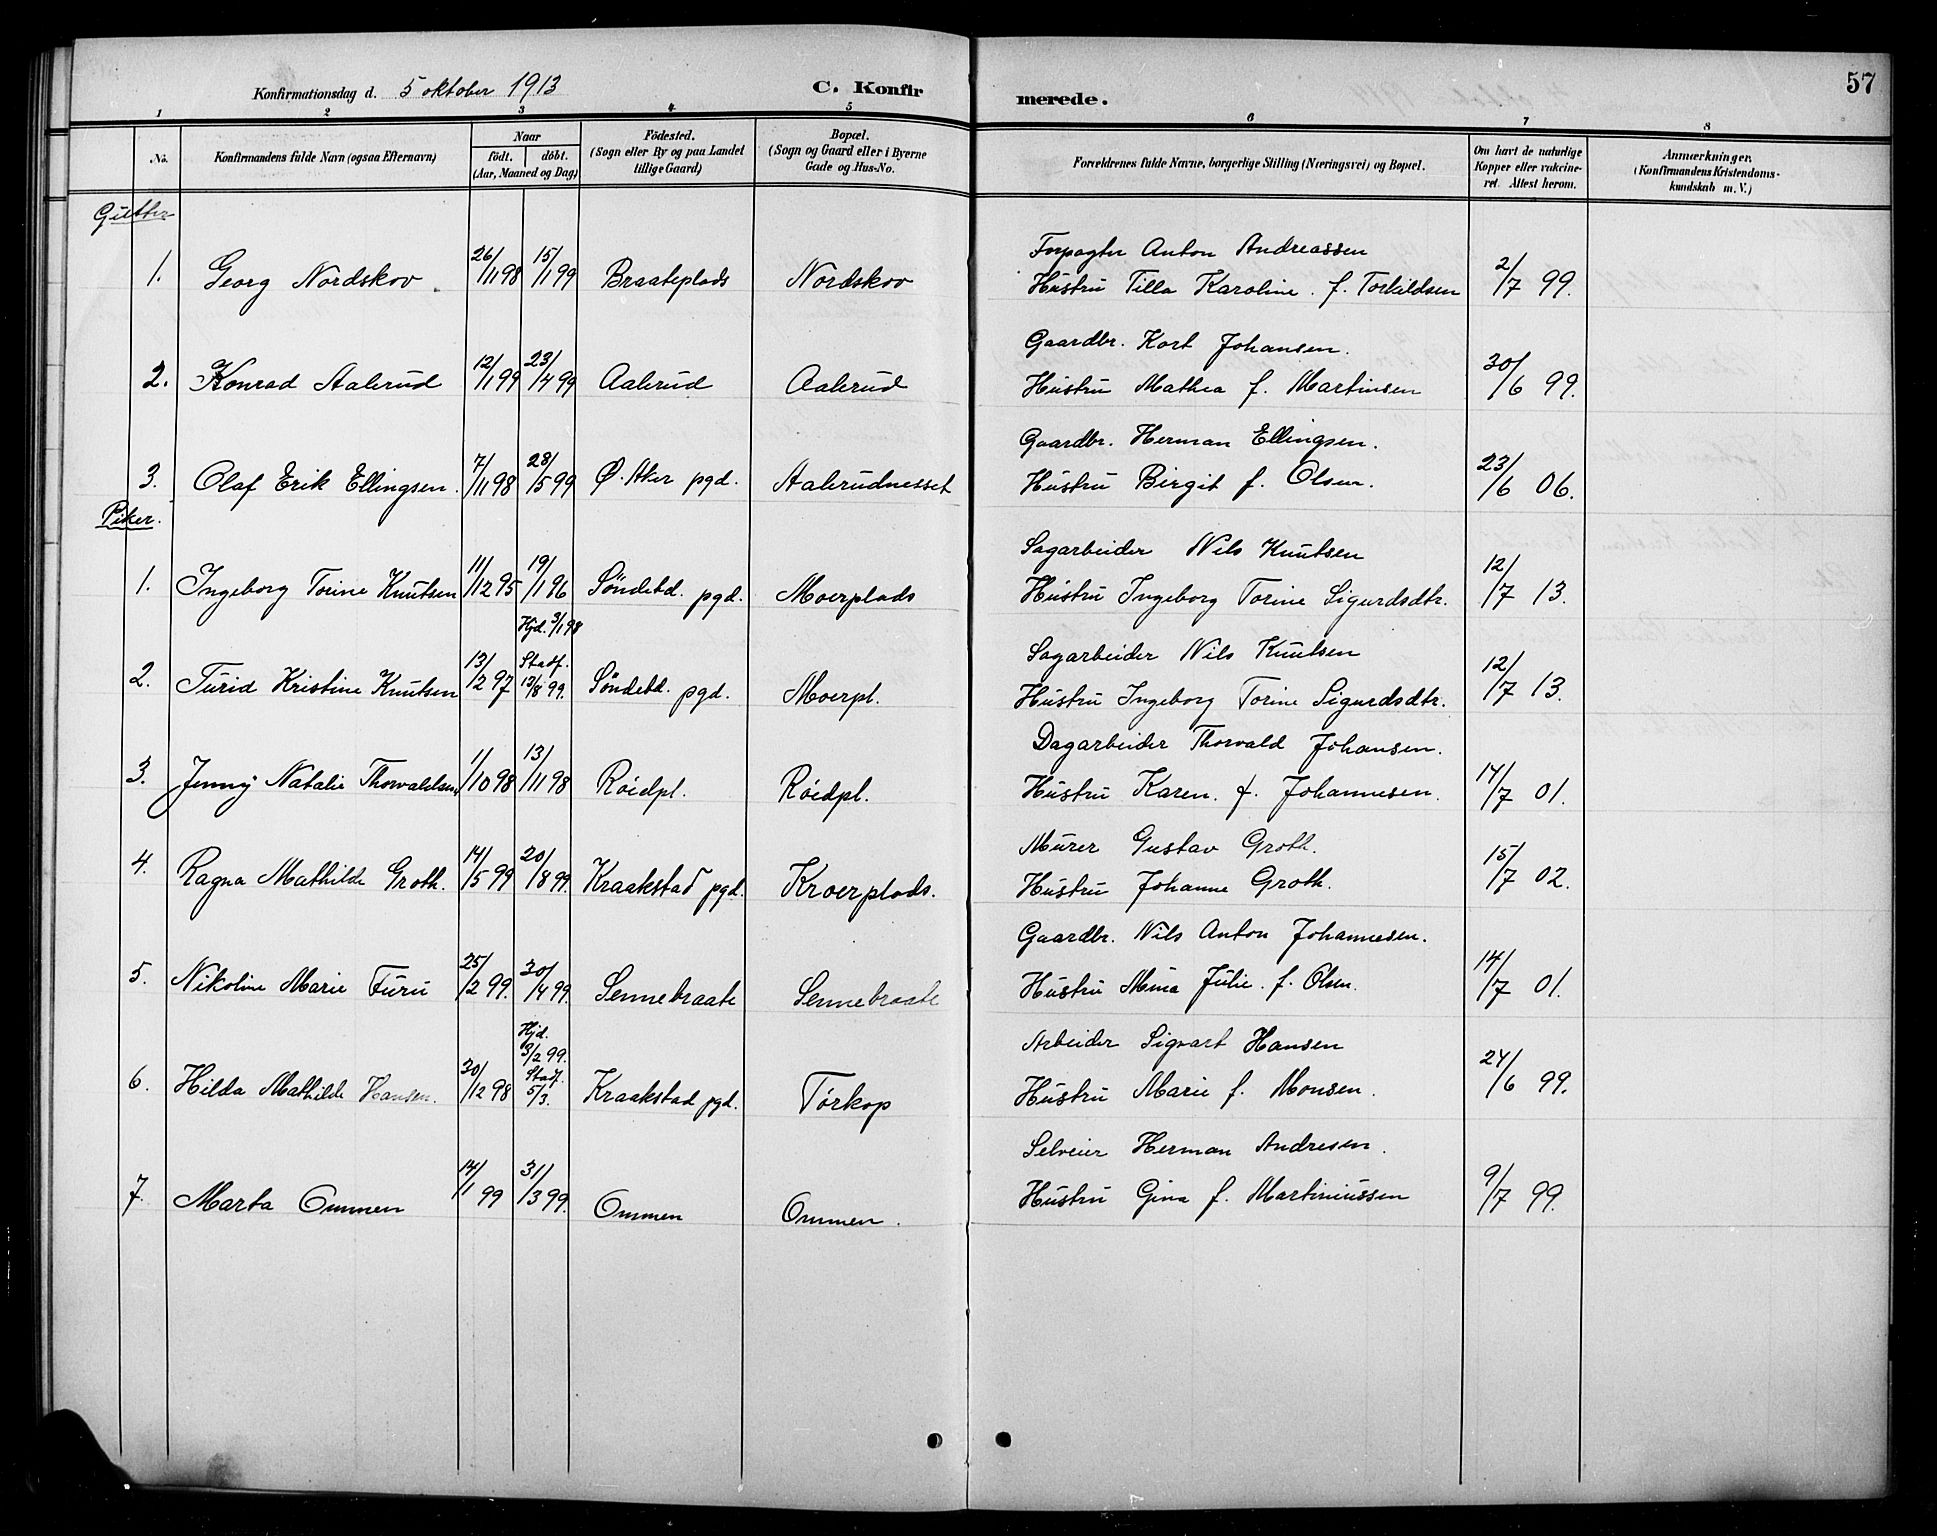 57
Konfirmationsdag d. 5 oktober 1913
C. Konfirmerede.
1 2 3 4 5 6 7 8
No.
Konfirmandens fulde Navn (ogsaa Efternavn)
Naar
födt. döbt.
(Aar, Maaned og Dag)
Födested.
(Sogn eller By og paa Landet
tillige Gaard)
Bopæl.
(Sogn og Gaard eller i Byerne
Gade og Hus-No.
Forældrenes fulde Navne, borgerlige Stilling (Næringsvei) og Bopæl.
Om havt de naturlige
Kopper eller vakcine-
ret. Attest herom.
Anmærkninger.
(Konfirmandens Kristendoms-
kundskab m. V.)
Gutter
Forpagter Anton Andreassen
1. Georg Nordskov 26/11 98 15/1 99 Braateplads Nordskov Hustru Tilla Karoline f. Torkildsen 2/7 99.
Gaardbr. Kort Johansen.
2. Konrad Aalerud 12/1 99 23/4 99 Aalerud Aalerud Hustru Mathea f. Martinsen 30/6 99.
Gaardbr. Herman Ellingsen.
3. Olaf Erik Ellingsen. 7/11 98 28/5 99 Ø. Aker pgd. Aalerudnesset Hustru Birgit f. Olsen. 23/6 06.
Piker.
Sagarbeider Nils Knutsen
1. Ingeborg Torine Knutsen 11/12 95 19/1 96 Söndebd. pgd. Moerplads Hustru Ingeborg Torine Sigurdsdtr. 12/7 13.
Hjd. 3/1 98
Stadf.
Sagarbeider Nils Knutsen
2. Turid Kristine Knutsen 13/2 97 13/8 99. Söndebd. pgd. Moerpl. Hustru Ingeborg Torine Sigurdsdtr. 12/7 13.
Dagarbeider Thorvald Johansen.
3. Jenny Natalie Thorvaldsen 1/10 98 13/11 98 Røidpl. Røidpl. Hustru Karen. f. Johannesen. 14/7 01.
Murer Gustav Groth.
4. Ragna Mathilde Groth. 14/5 99 20/8 99. Kraakstad pgd. Kroerplads. Hustru Johanne Groth. 15/7 02.
Gaardbr. Nils Anton Johannesen.
5. Nikoline Marie Furu 25/2 99. 30/4 99. Sennebraate Sennebraate Hustru Mina Julie. f. Olsen. 14/7 01.
Hjd.
3/2 99.
Stadf.
Arbeider Sigvart Hansen
6. Hilda Mathilde Hansen. 30/12 98 5/3. Kraakstad pgd. Tørkop Hustru Marie f. Monsen. 24/6 99.
Selveier Herman Andresen.
7. Marta Ommen 14/1 99 31/3 99. Ommen Ommen. Hustru Gina f. Martiniussen 9/7 99.